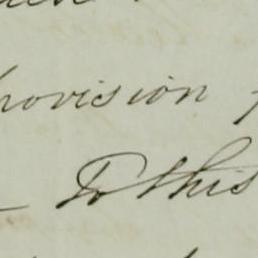 provision
To this